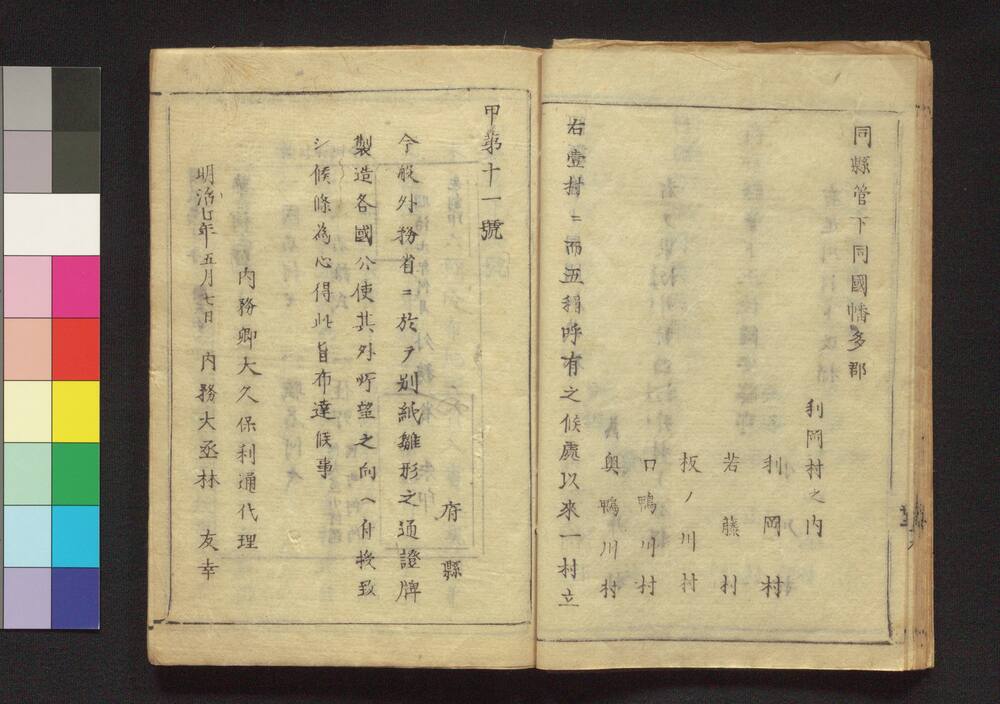 同縣管下同國幡多郡
利岡村之内
利岡村
若藤村
板ノ川村
口鴨川村
奥鴨川村
右壹村ニ而五稱呼有之候處以來一村立
甲第十一號
府縣
今般外務省ニ於テ別紙雛形之通證牌
製造各國公使其外所望之向ヘ付授致
シ候條為心得此旨布達候事
内務卿大久保利通代理
明治七年五月七日 内務大丞林 友幸